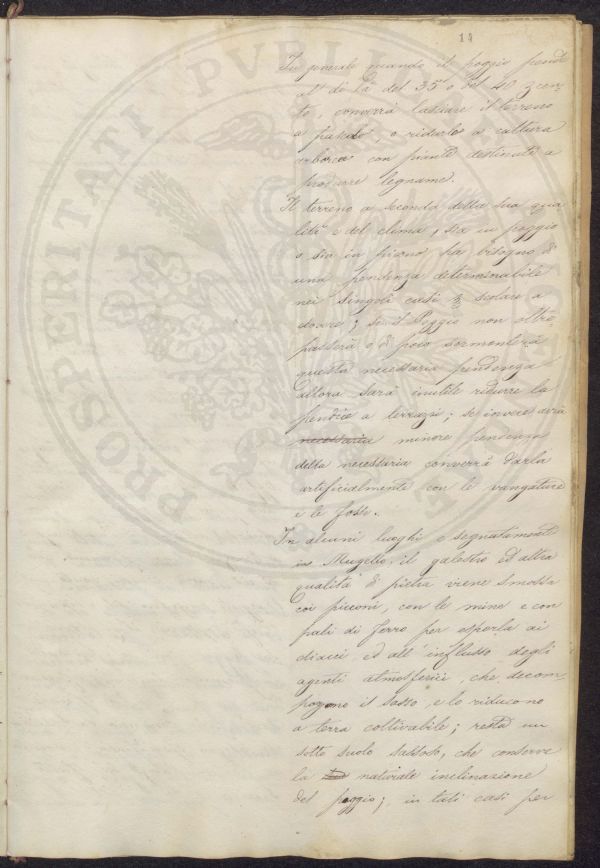 14
In generale quando il poggio pende
al di là del 35 o del 40 per cen-
to, converrà lasciare il terreno
a prato, o ridurlo a cultura
arborea con piante destinate a
produrre legname.
Il terreno a seconda della sua qua
lità e del clima, sia in poggio
o sia in piano ha bisogno di
una pendenza determinabile
nei singoli casi per scolare a
dovere; se il Poggio non oltre-
passerà o di poco sormonterà
questa necessaria pendenza
allora sarà inutile ridurre la
pendice a terrazzi; se invece avrà
necessaria minore pendenza
della necessaria converrà darla
artificialmente con le vangature
e le fosse.
In alcuni luoghi e segnatamente
in Mugello, il galestro ed altra
qualità di pietra viene smossa
coi picconi, con le mine e con
pali di ferro per esporla ai
diacci ed all'influsso degli
agenti atmosferici, che decom
pogono il sasso, e lo riducono
a terra coltivabile; resta un
sotto suolo sassoso, che conserva
la naturale inclinazione
del poggio; in tali casi per
PROSPERITATI PUBLICAE